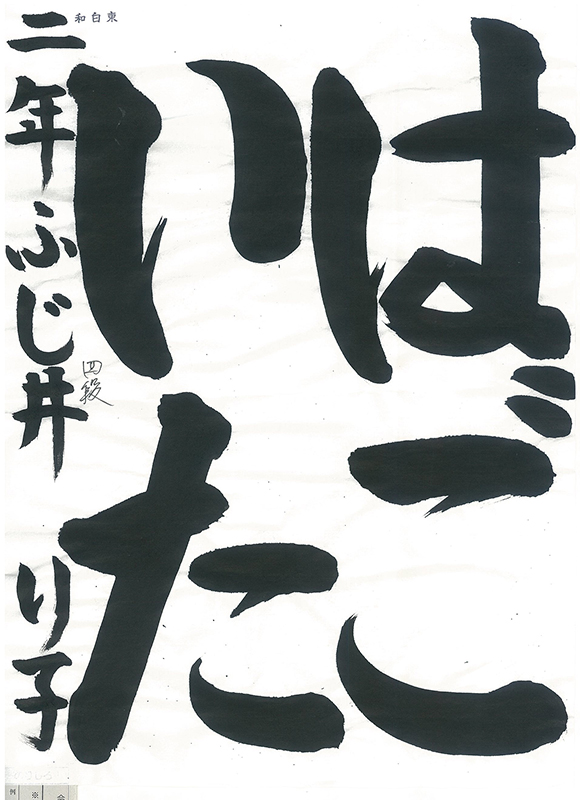 はご
いた
和白東
二年 ふじ井 り子
四段
例
※